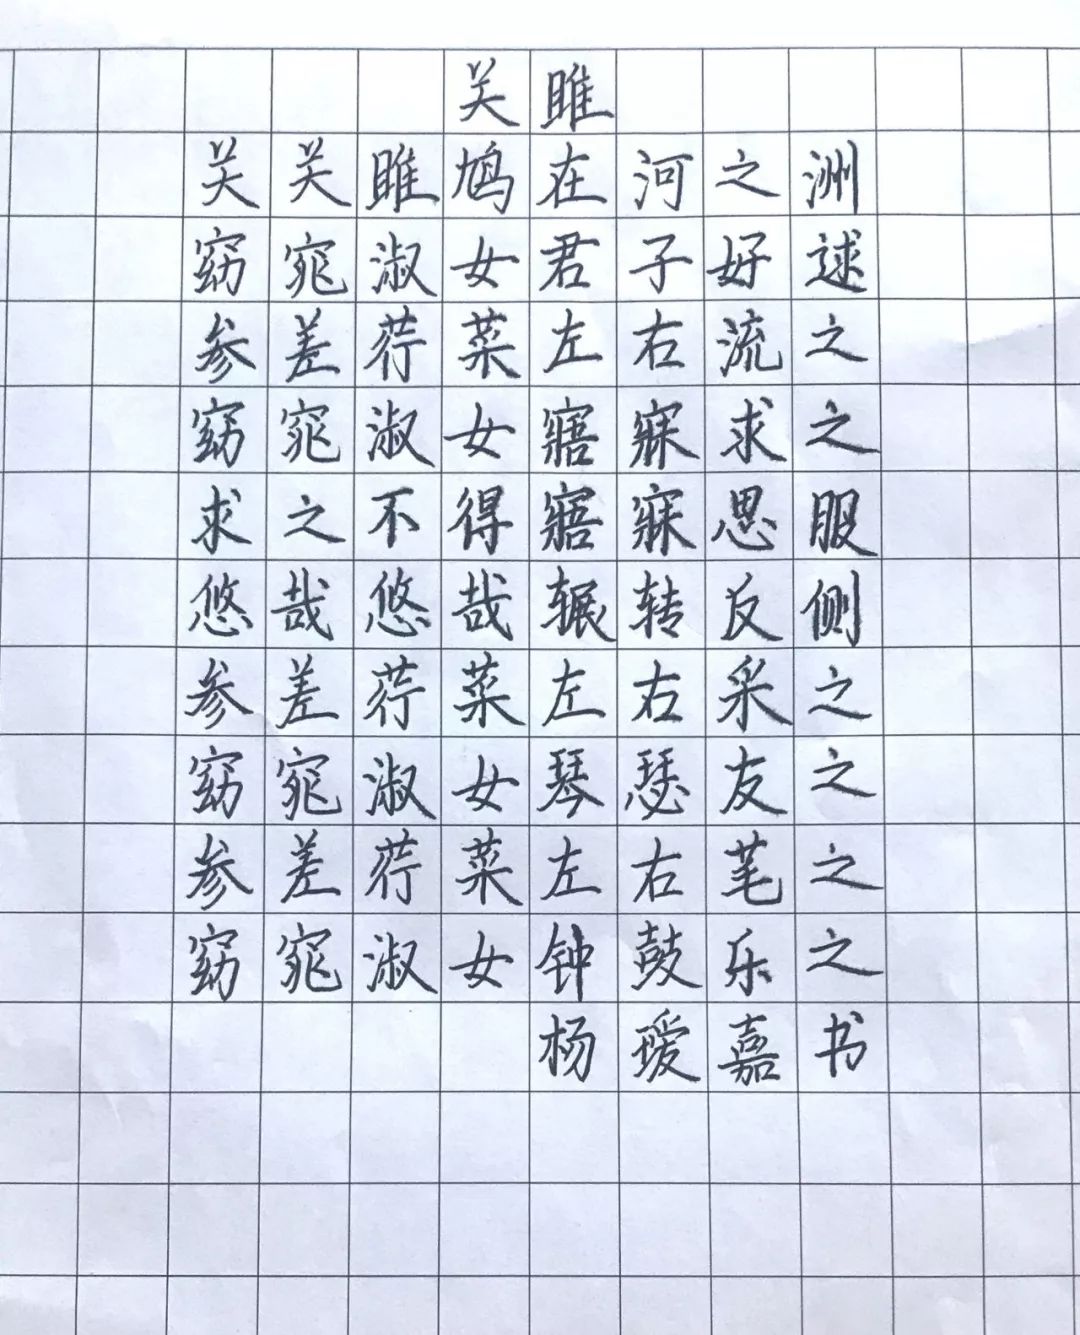 关雎
关关雎鸠在河之洲
窈窕淑女君子好逑
参差荇菜左右流之
窈窕淑女寤寐求之
求之不得寤寐思服
悠哉悠哉辗转反侧
参差荇菜左右采之
窈窕淑女琴瑟友之
参差荇菜左右芼之
窈窕淑女钟鼓乐之
杨瑷嘉书